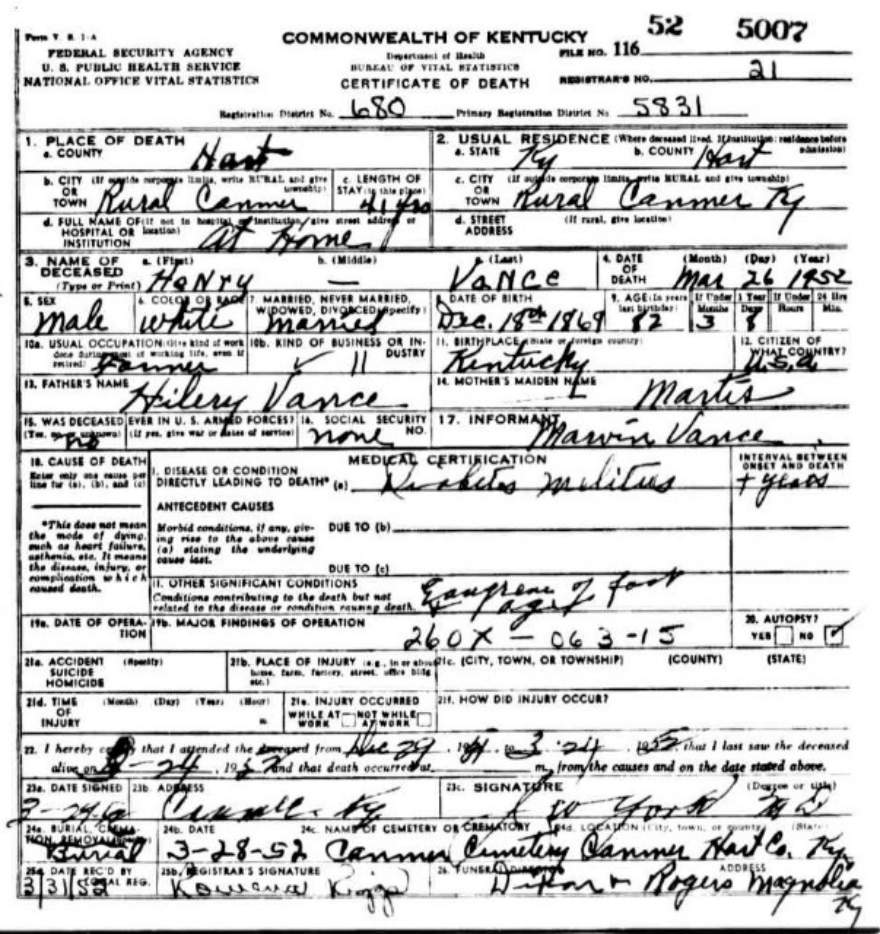 Form V. S. 1-A
FEDERAL SECURITY AGENCY
U. S. PUBLIC HEALTH SERVICE
NATIONAL OFFICE VITAL STATISTICS
COMMONWEALTH OF KENTUCKY
Department of Health
BUREAU OF VITAL STATISTICS
CERTIFICATE OF DEATH
FILE NO. 116 52 5007
REGISTRAR'S NO. 21
Registration District No. 680 Primary Registration District No. 5831
1. PLACE OF DEATH
a. COUNTY Hart
2. USUAL RESIDENCE (Where deceased lived. If institution: residence before admission)
a. STATE Ky b. COUNTY Hart
b. CITY (If outside corporate limits, write RURAL and give township) OR TOWN Rural Canmer
c. LENGTH OF STAY (in this place) 41 yrs
c. CITY (If outside corporate limits, write RURAL and give township) OR TOWN Rural Canmer Ky
d. FULL NAME OF (If not in hospital or institution, give street address or location) HOSPITAL OR INSTITUTION At Home
d. STREET ADDRESS (If rural, give location)
3. NAME OF DECEASED (Type or Print) a. (First) Henry b. (Middle) — c. (Last) Vance
4. DATE OF DEATH (Month) (Day) (Year) Mar 26 1952
5. SEX Male
6. COLOR OR RACE white
7. MARRIED, NEVER MARRIED, WIDOWED, DIVORCED (Specify) Married
8. DATE OF BIRTH Dec. 18th 1869
9. AGE (In years last birthday) 82 If Under 1 Year Months 3 Days 8 If Under 24 Hrs Hours Min.
10a. USUAL OCCUPATION (Give kind of work done during most of working life, even if retired) Farmer
10b. KIND OF BUSINESS OR INDUSTRY
11. BIRTHPLACE (State or foreign country) Kentucky
12. CITIZEN OF WHAT COUNTRY? U.S.A.
13. FATHER'S NAME Hilery Vance
14. MOTHER'S MAIDEN NAME Martis
15. WAS DECEASED EVER IN U. S. ARMED FORCES? (Yes, no or unknown) (If yes, give war or dates of service) no
16. SOCIAL SECURITY NO. none
17. INFORMANT Marvin Vance
18. CAUSE OF DEATH
Enter only one cause per line for (a), (b), and (c)
*This does not mean the mode of dying, such as heart failure, asthenia, etc. It means the disease, injury, or complication which caused death.
MEDICAL CERTIFICATION
I. DISEASE OR CONDITION DIRECTLY LEADING TO DEATH* (a) Diabetes Melitus
INTERVAL BETWEEN ONSET AND DEATH
years
ANTECEDENT CAUSES
Morbid conditions, if any, giving rise to the above cause (a) stating the underlying cause last.
DUE TO (b)
DUE TO (c)
II. OTHER SIGNIFICANT CONDITIONS
Conditions contributing to the death but not related to the disease or condition causing death.
Gangrene of foot
age
19a. DATE OF OPERATION
19b. MAJOR FINDINGS OF OPERATION
260X - 063-15
20. AUTOPSY? YES NO
21a. ACCIDENT SUICIDE HOMICIDE (Specify)
21b. PLACE OF INJURY (e.g., in or about home, farm, factory, street, office bldg etc.)
21c. (CITY, TOWN, OR TOWNSHIP) (COUNTY) (STATE)
21d. TIME OF INJURY (Month) (Day) (Year) (Hour) m.
21e. INJURY OCCURRED WHILE AT WORK NOT WHILE AT WORK
21f. HOW DID INJURY OCCUR?
22. I hereby that I attended the deceased from Dec 29, to 3-24, 1952 that I last saw the deceased
alive on 3-24, 1952 and that death occurred at m., from the causes and on the date stated above.
23a. DATE SIGNED
23b. ADDRESS Canmer Ky
23c. SIGNATURE (Degree or title) York MD
24a. BURIAL, CREMATION, REMOVAL Burial
24b. DATE 3-28-52
24c. NAME OF CEMETERY OR CREMATORY Canmer Cemetery
24d. LOCATION (City, town, or county) (State) Canmer Hart Co. Ky.
25a. DATE REC'D BY LOCAL REG. 3/31/52
25b. REGISTRAR'S SIGNATURE
26. FUNERAL DIRECTOR ADDRESS
Rogers Magnolia Ky